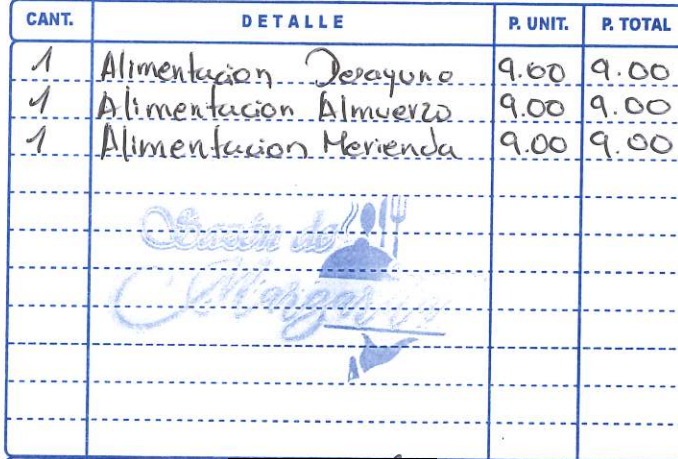 CANT. DETALLE P. UNIT. P. TOTAL
1 Alimentacion Desayuno 9.00 9.00
1 Alimentacion Almuerzo 9.00 9.00
1 Alimentacion Merienda 9.00 9.00
Sazón de
Margarita